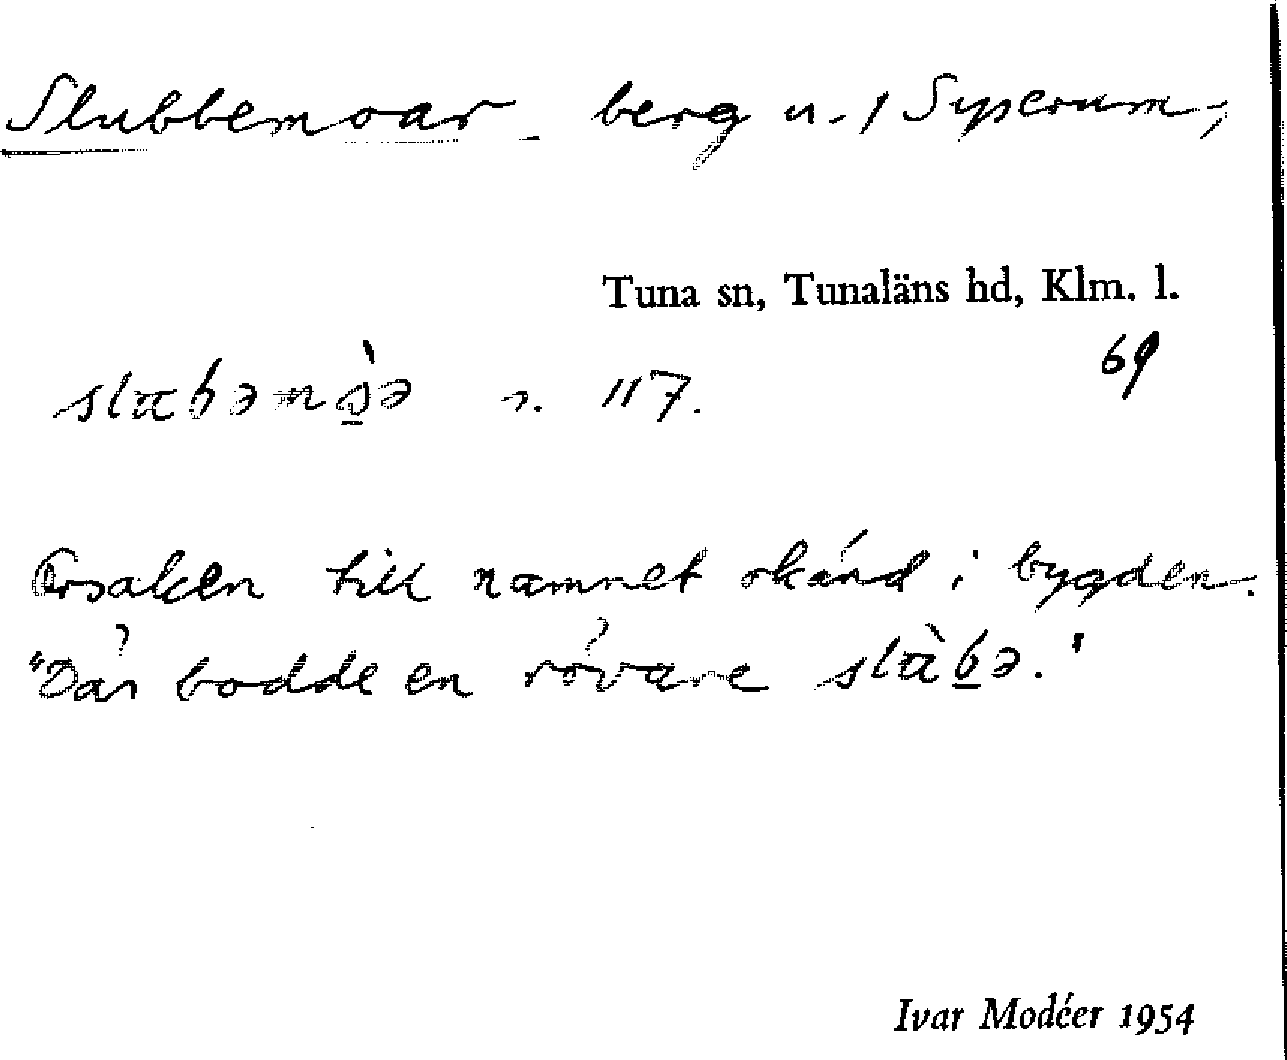 Slubbemoar berg u. / Syserum,
Tuna sn, Tunaläns hd, Klm. l.
s. 117. 69
Orsaken till namnet okänd i bygden.
"Där bodde en rövare
Ivar Modéer 1954